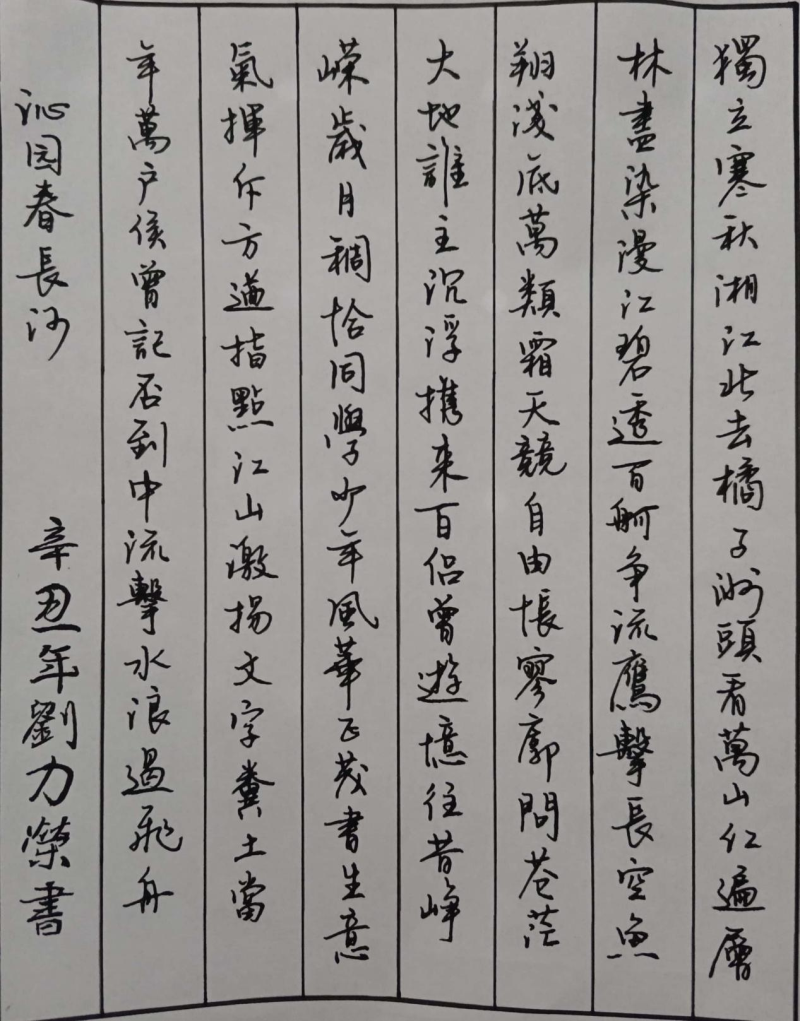 獨立寒秋湘江北去橘子洲頭看萬山红遍層
林盡染漫江碧透百舸争流鷹擊長空魚
翔淺底萬類霜天競自由悵寥廓問苍茫
大地誰主沉浮携来百侣曾遊憶往昔峥
嵘歲月稠恰同學少年風華正茂書生意
氣揮斥方遒指點江山激揚文字糞土當
年萬户侯曾記否到中流擊水浪遏飛舟
沁园春長沙
辛丑年劉力榮書